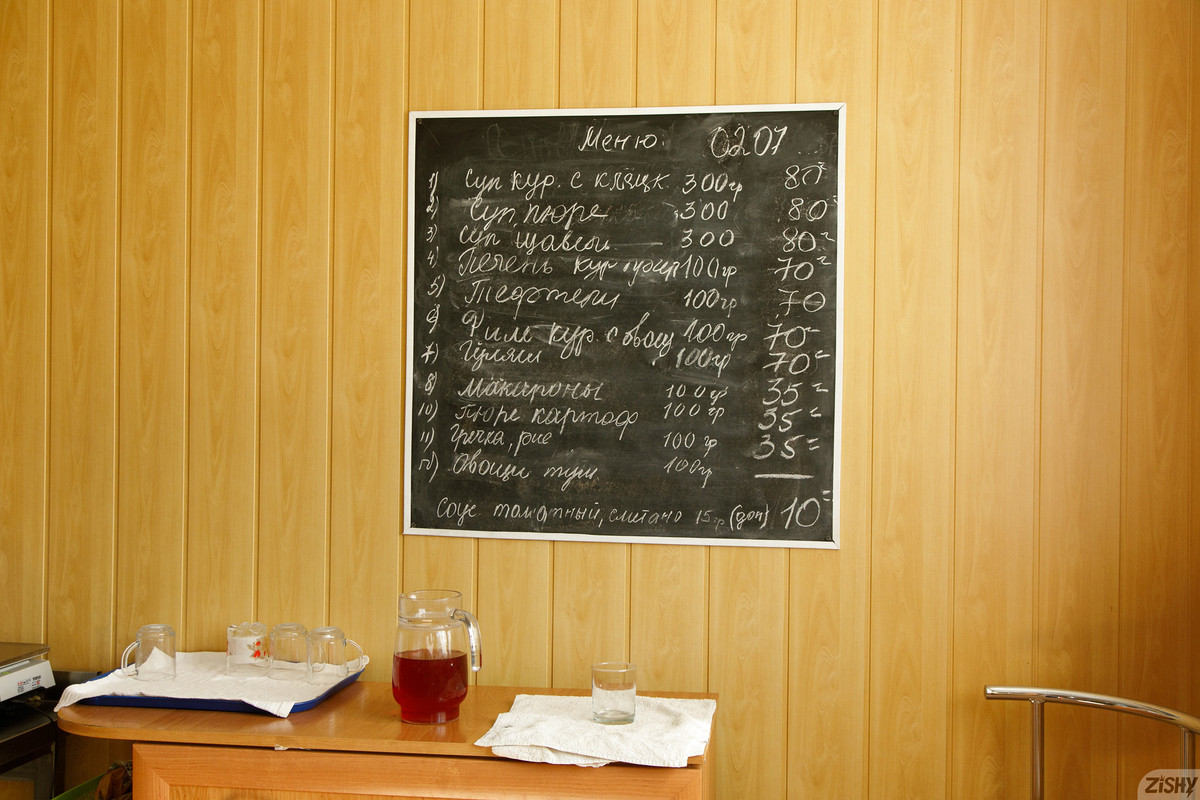 Меню. 0207
1) Суп кур. с клёцк. 300гр 80=
2) Суп, пюре 300 80=
3) Суп щавел. — 300 80=
4) Печень кур 100гр 70=
5) Тефтели 100гр 70
6) Филе кур. с овощ 100гр 70=
7) Гуляш 100гр 70=
8) Макароны 100гр 35=
10) Пюре картоф 100гр 35=
11) Гречка, рис 100гр 35=
12) Овощи туш 100гр —
Соус томатный, сметано 15гр (доп) 10=
ZiSHY